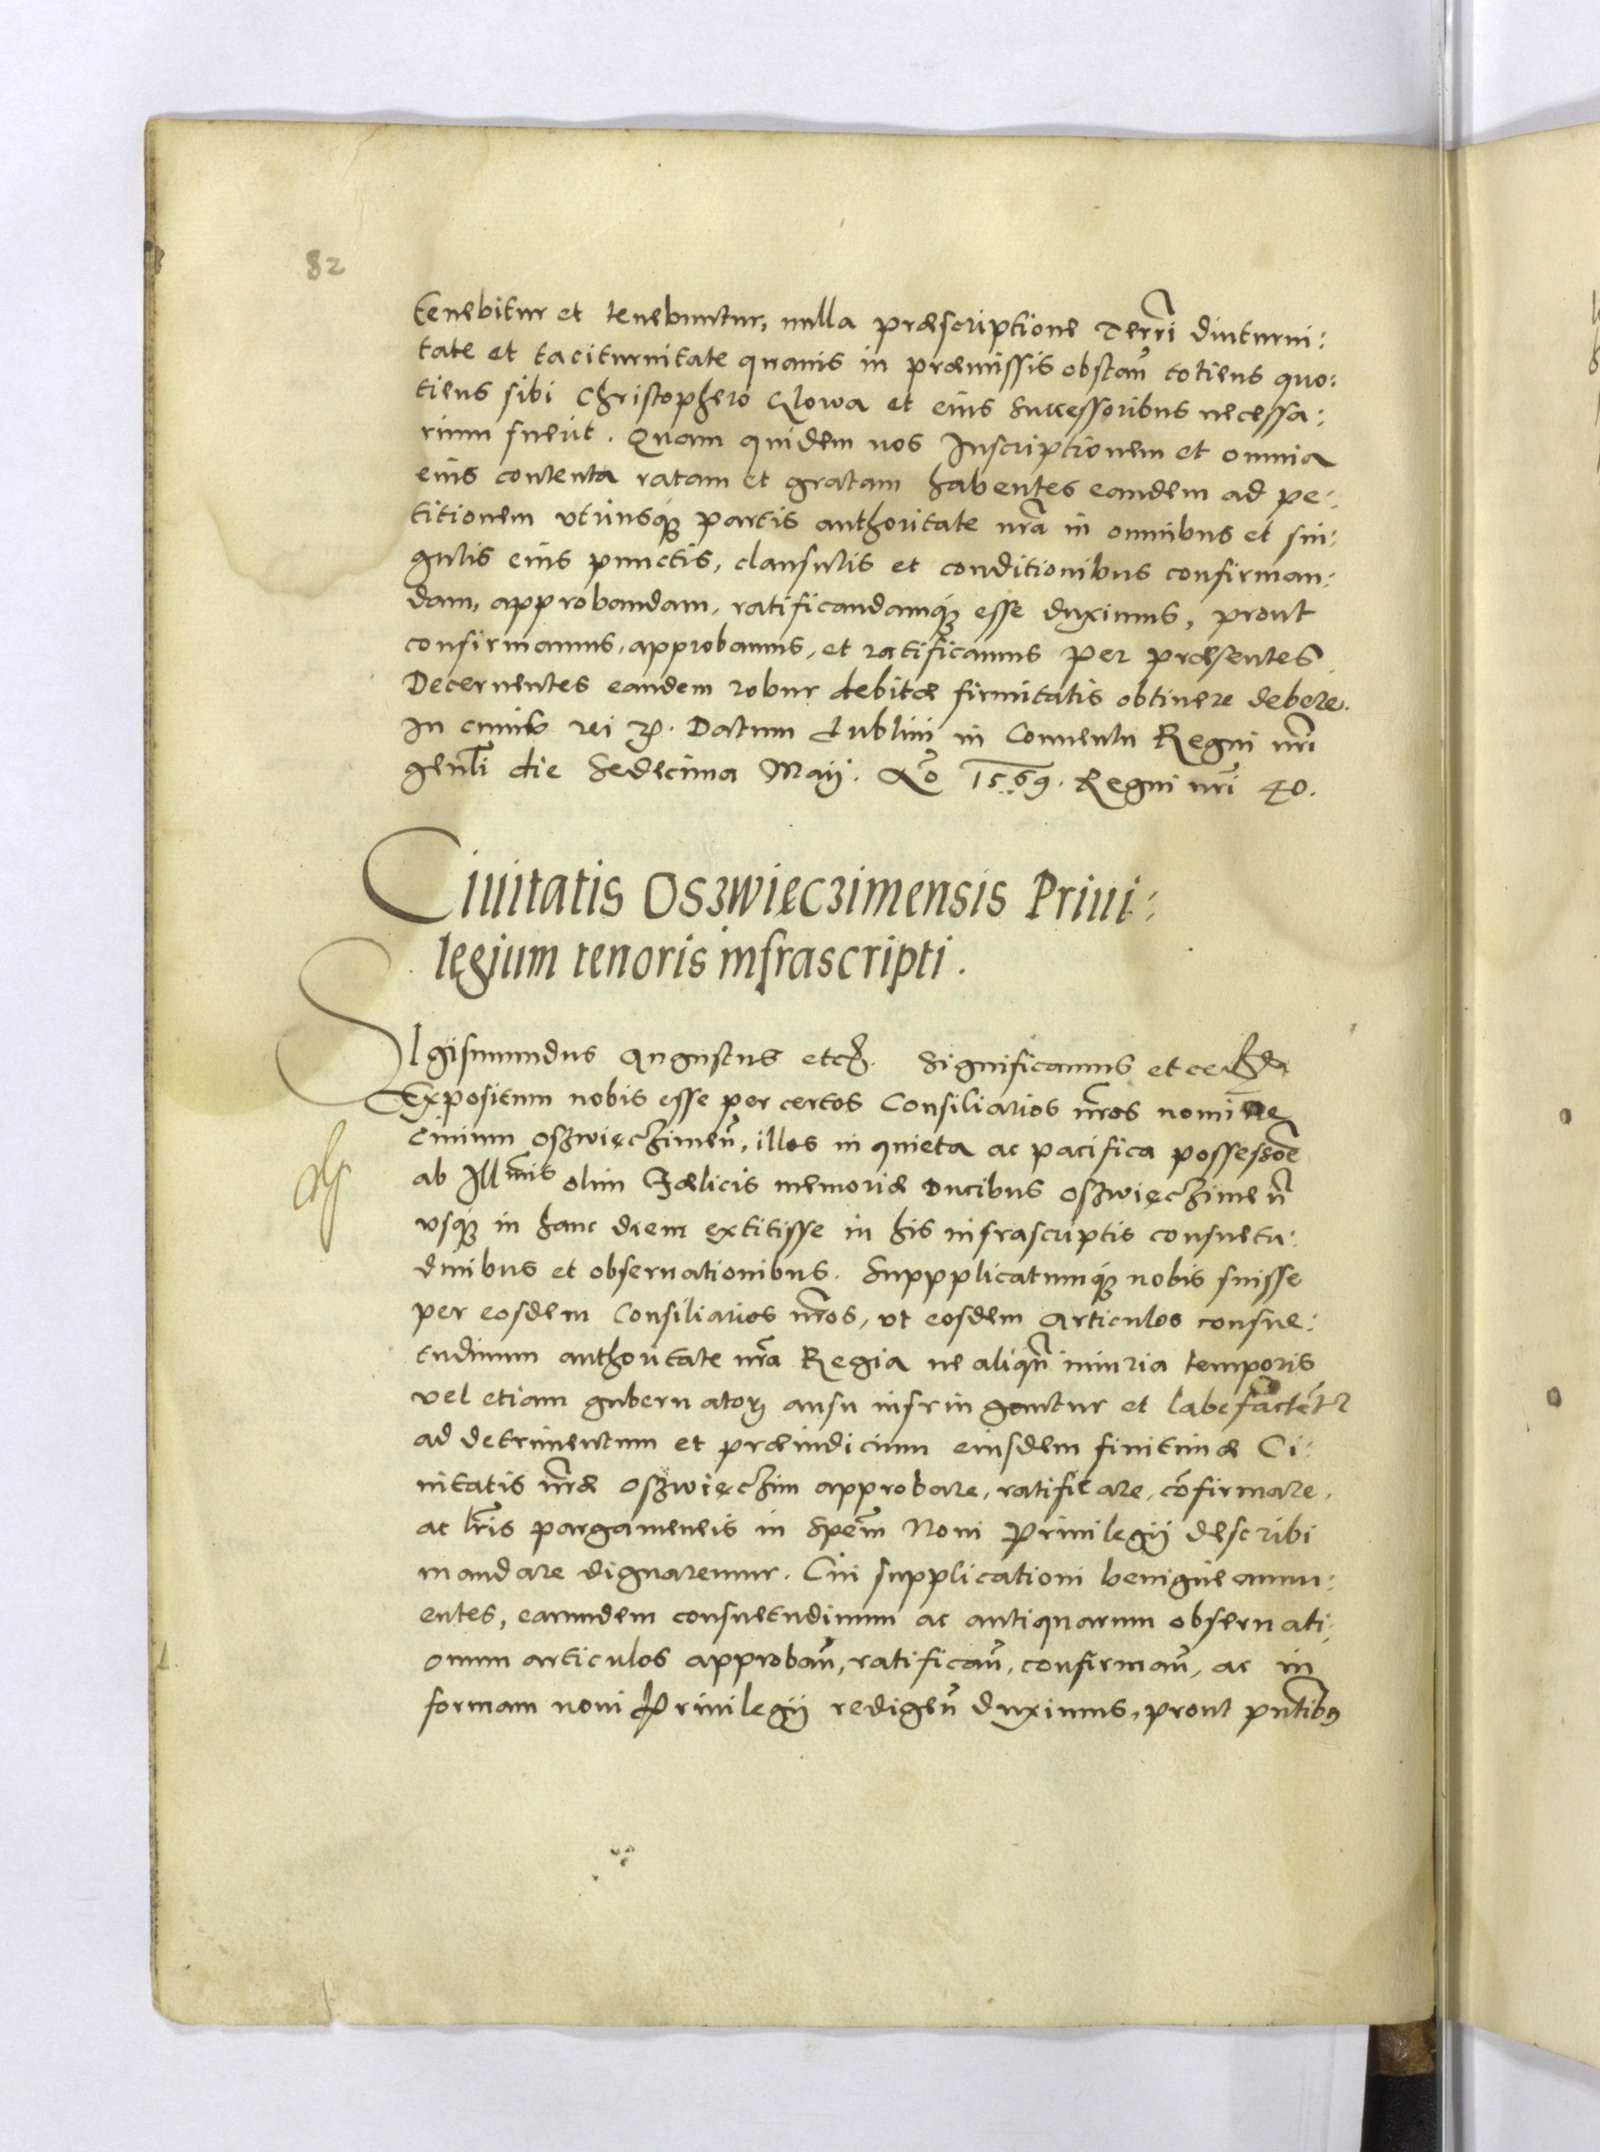 82
tenebitur et tenebuntur, nulla præscriptione Terrĩ diuturni:
tate et taciturnitate quauis in præmissis obstañ totiens quo:
tiens sibi Christophero Klowa et eius Successoribus necessa:
rium fuerit. Quam quidem nos Inscriptionem et omnia
eius contenta ratam et gratam habentes eandem ad pe:
titionem vtriusq3 partis authoritate nr̃a in omnibus et sin:
gulis eius punctis, clausulis et conditionibus confirman:
dam, approbandam, ratificandamq3 esse duximus, prout
confirmamus, approbamus, et ratificamus per præsentes
Decernentes eandem robur debitæ firmitatis obtinere debere.
In cuius rei Datum Lublini in Conuentu Regni nr̃i
genl̃i die Sedecima Maij. Aõ 1569. Regni nr̃i 40.
Ciuitatis Oszwięczimensis Priui:
legium tenoris infrascripti.
Sigismundus Augustus etc. Significamus etc
Expositum nobis esse per certos Consiliarios nr̃os nomine
Ciuium Oszwięczimeñ, illos in quieta ac pacifica possessõe
ab Illmis olim Fælicis memoriæ Ducibus Oszwięczimeñ
vsq3 in hanc diem extitisse in his infrascriptis consuetu:
dinibus et obseruationibus. Suppplicatumq3 nobis fuisse
per eosdem Consiliarios nr̃os, vt eosdem Articulos consue:
tudinum authoritate nr̃a Regia ne aliqñ iniuria temporis
vel etiam gubernatorꝝ ausu infringantur et labefactent̃r
ad detrimentum et præiudicium eiusdem finitimæ Ci:
uitatis nr̃æ Oszwięczim approbare, ratificare, cõfirmare,
ac lr̃is pargameneis in Spẽm Noui Priuilegij describi
mandare dignaremur. Cui supplicationi benigne annu:
entes, earundem consuetudinum ac antiquarum obseruati:
onum articulos approbañ, ratificañ, confirmañ, ac in
formam noui Priuilegij redigeñ duximus, prout pñtibus